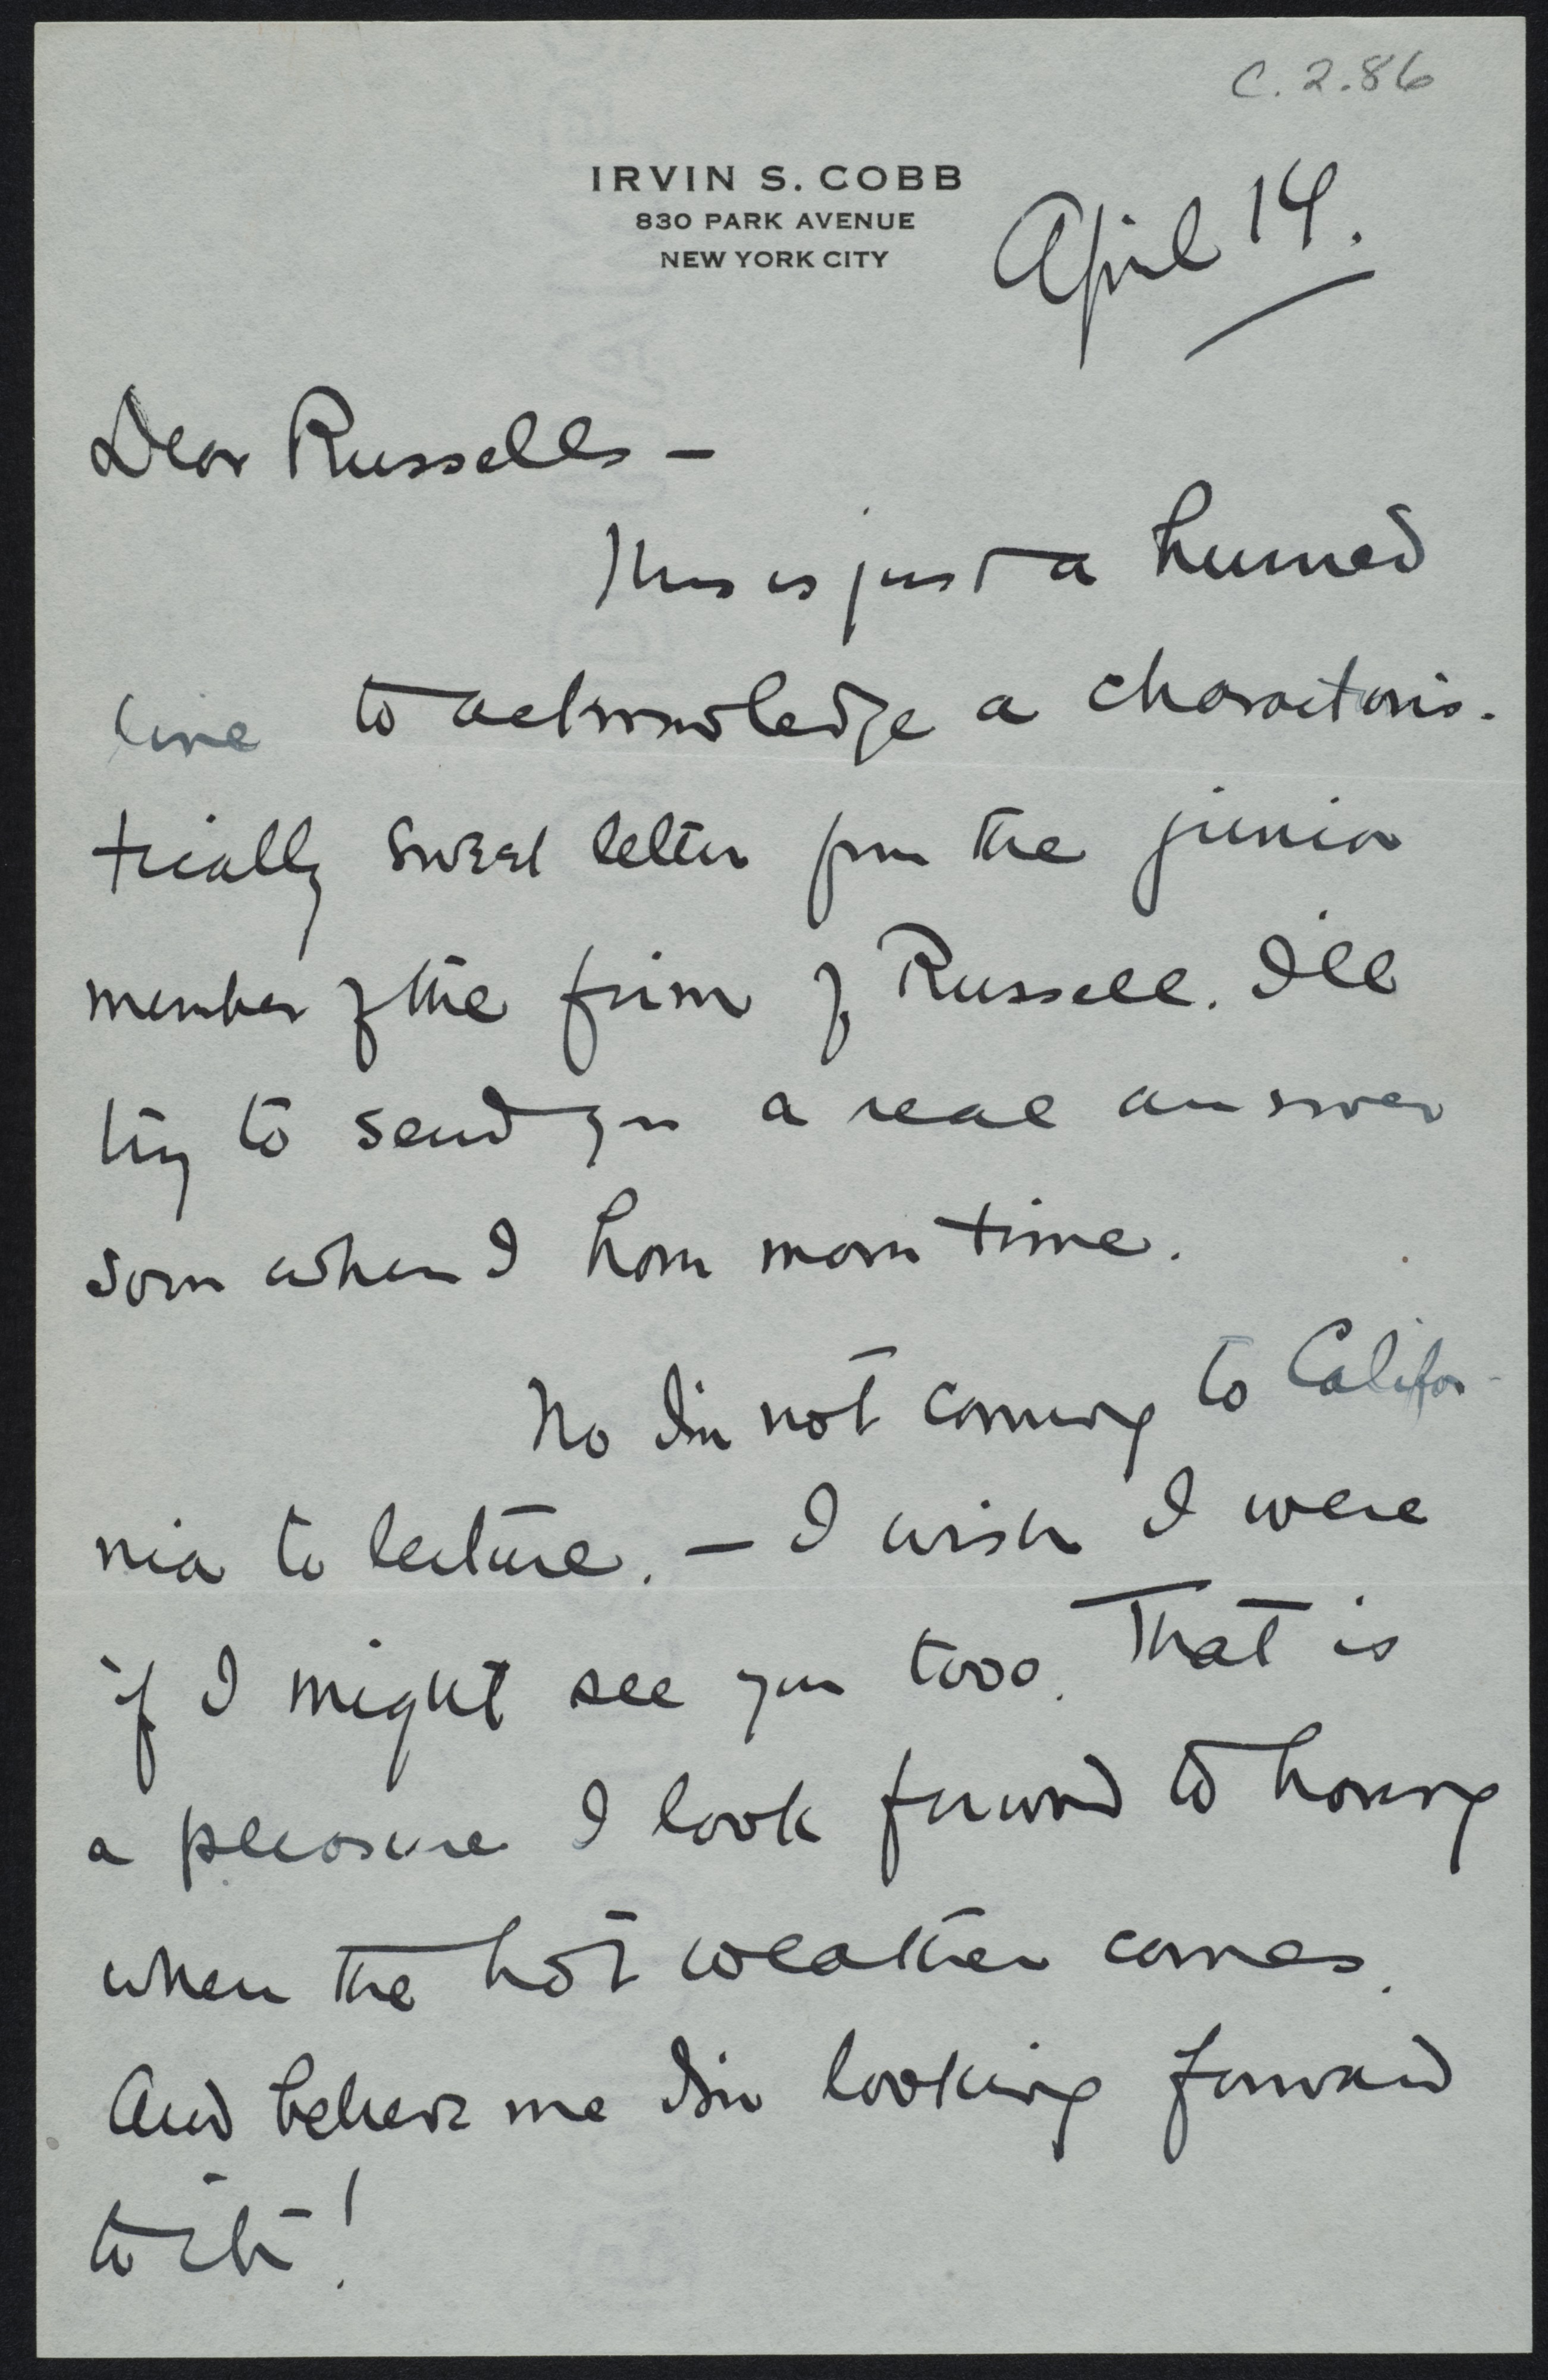 C. 2.86
IRVIN S. COBB
830 PARK AVENUE
NEW YORK CITY
April 14.
Dear Russells —
This is just a hurried
line to acknowledge a characteris-
tically sweet letter from the junior
member of the firm of Russell. I'll
try to send you a real answer
soon when I have more time.
No I'm not coming to Califor-
nia to lecture. — I wish I were
if I might see you tooo. That is
a pleasure I look forward to having
when the hot weather comes.
And believe me I'm looking forward
to it!